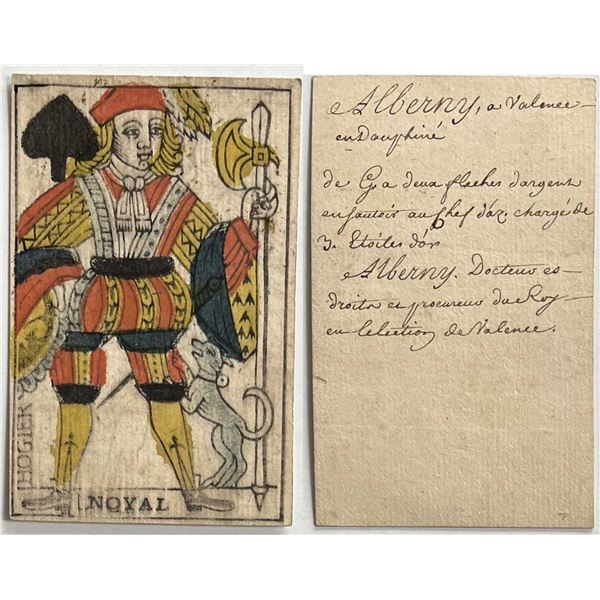 HOGIER
NOYAL
Alberny, a Valence
en Dauphiné
de G, a deux fleches d'argent
en sautoir au Chef d'az. chargé de
3. Etoiles d'or
Alberny. Docteur es-
droits et procureur du Roy
en l'election de Valence.